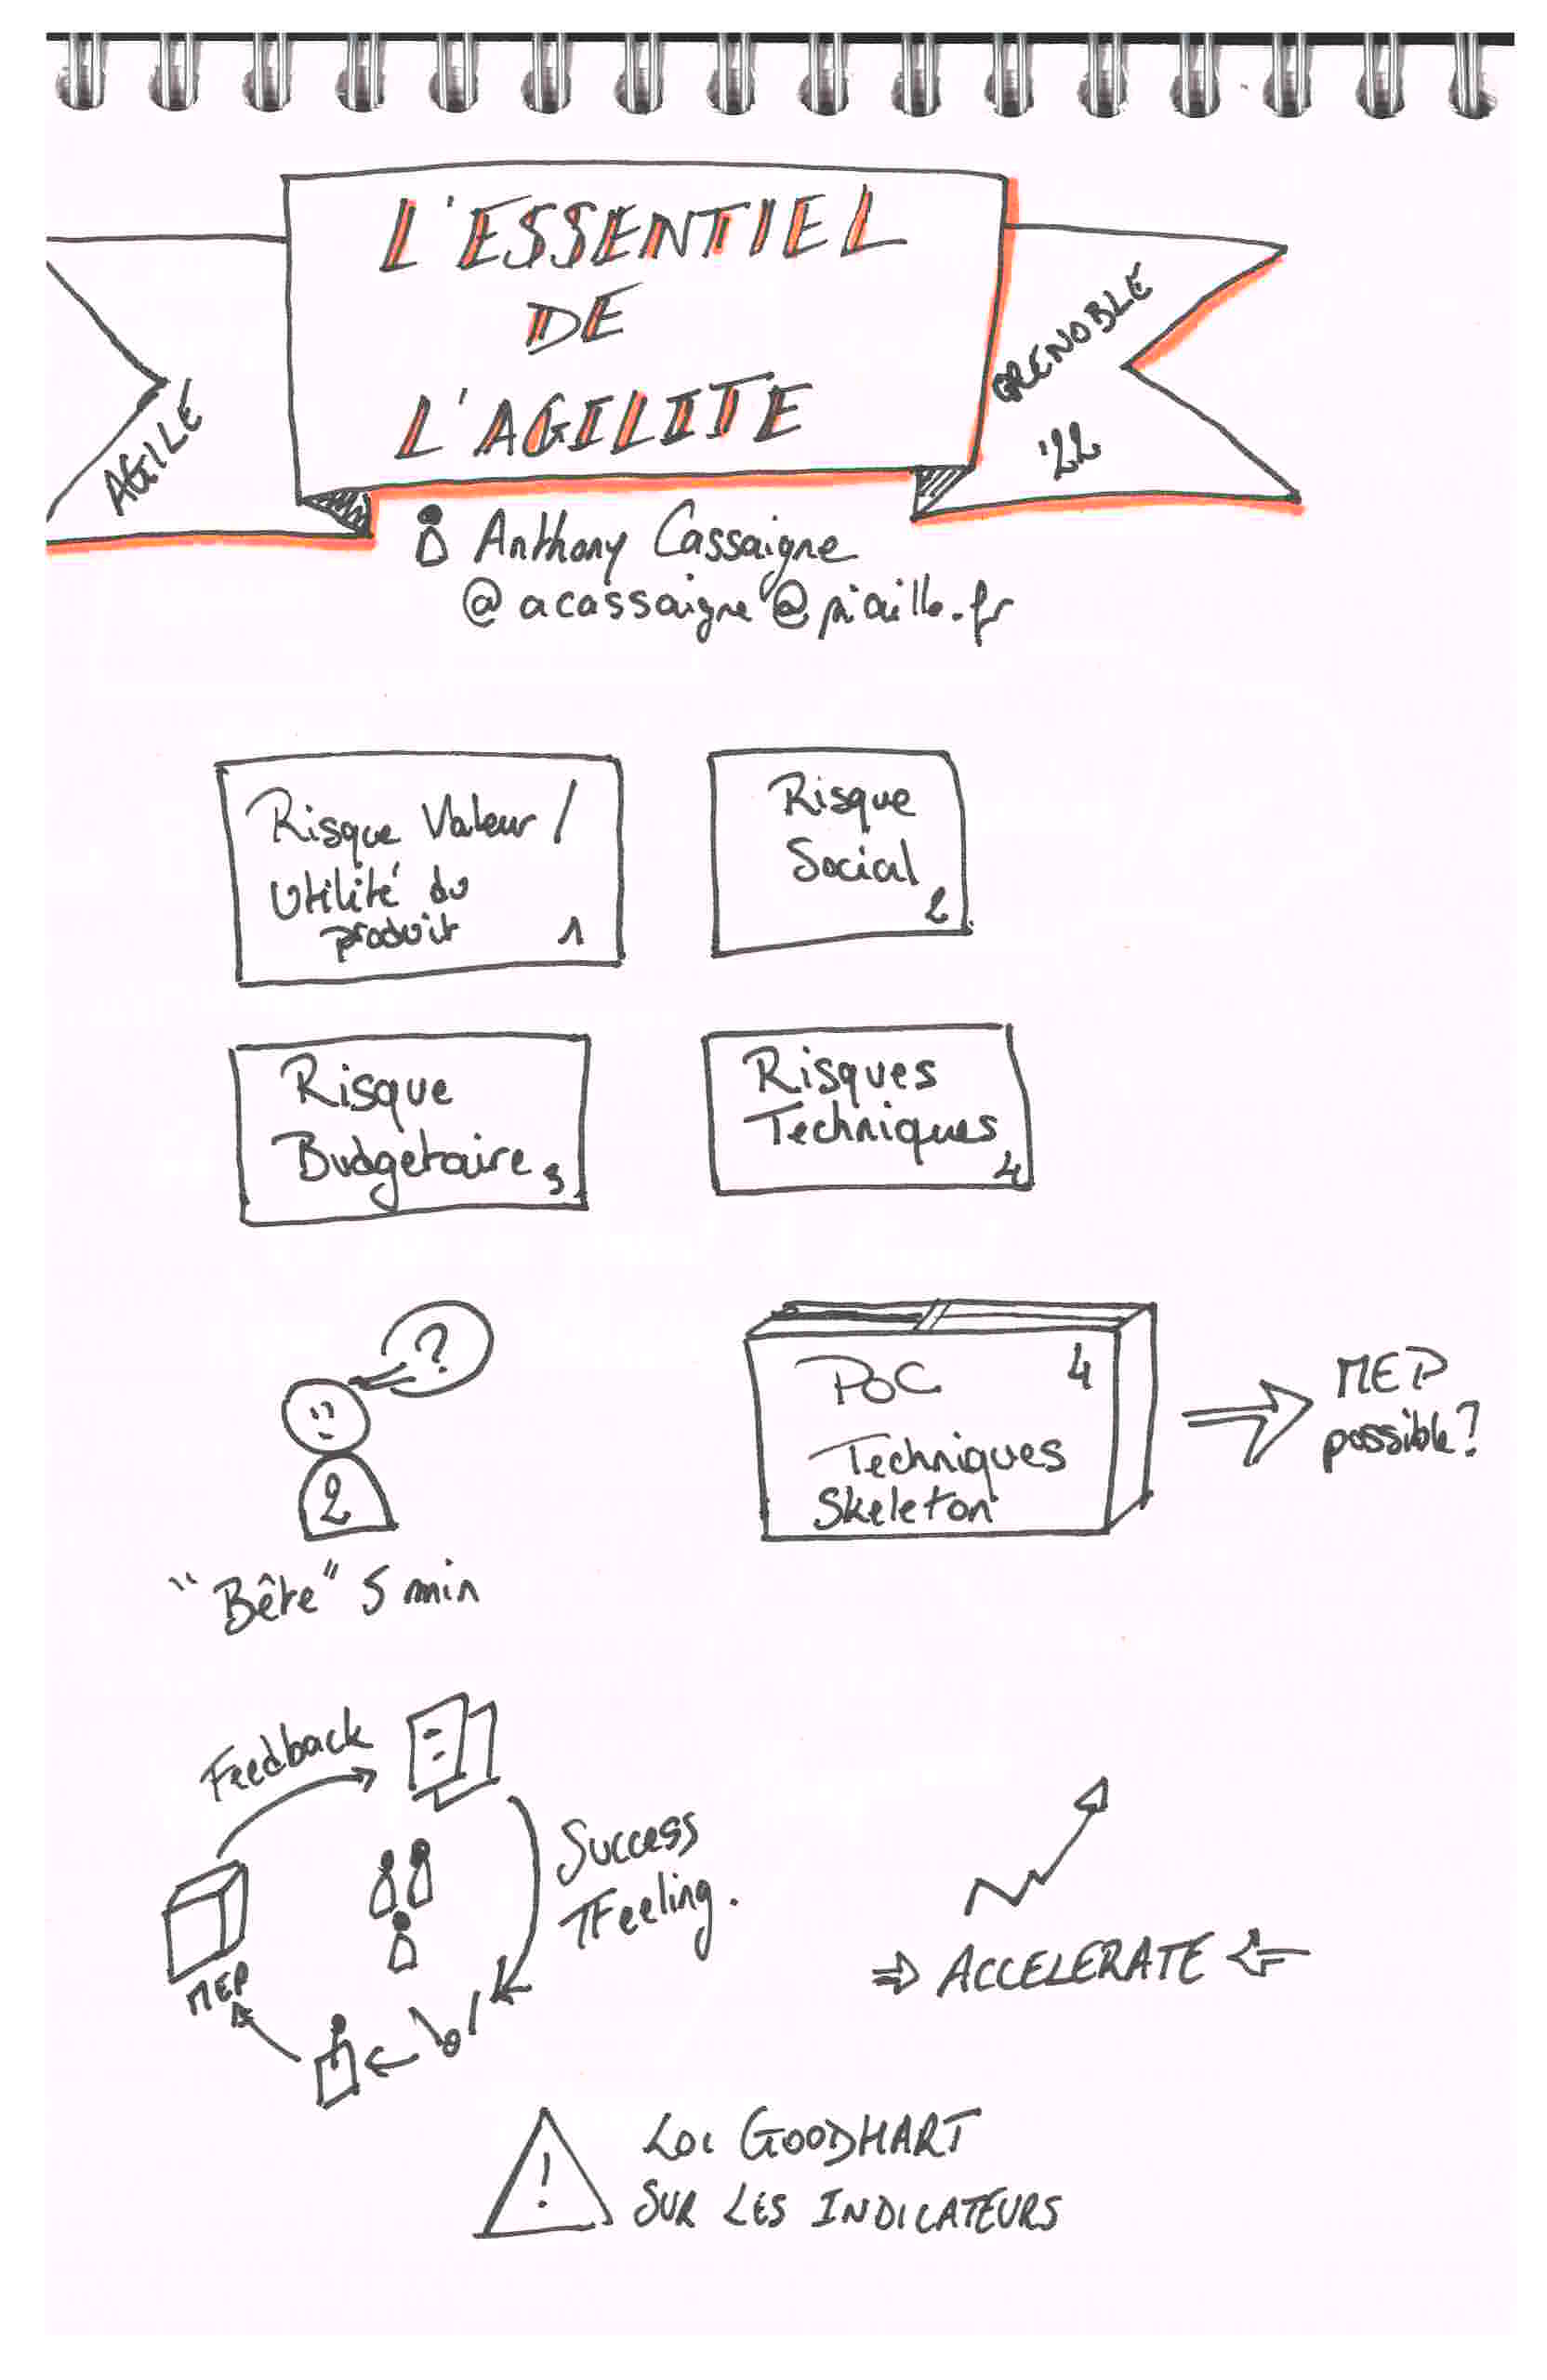 L'ESSENTIEL
DE
L'AGILITE
AGILE
GRENOBLE
'22
Anthony Cassaigne
@acassaigne@piaille.fr
Risque Valeur /
Utilité du
produit
1
Risque
Social
2
Risque
Budgetaire 3
Risques
Techniques
4
?
2
"Bête" 5 min
POC 4
Techniques
Skeleton
MEP
possible?
Feedback
Success
Feeling.
MEP
ACCELERATE
!
LOI GOODHART
SUR LES INDICATEURS